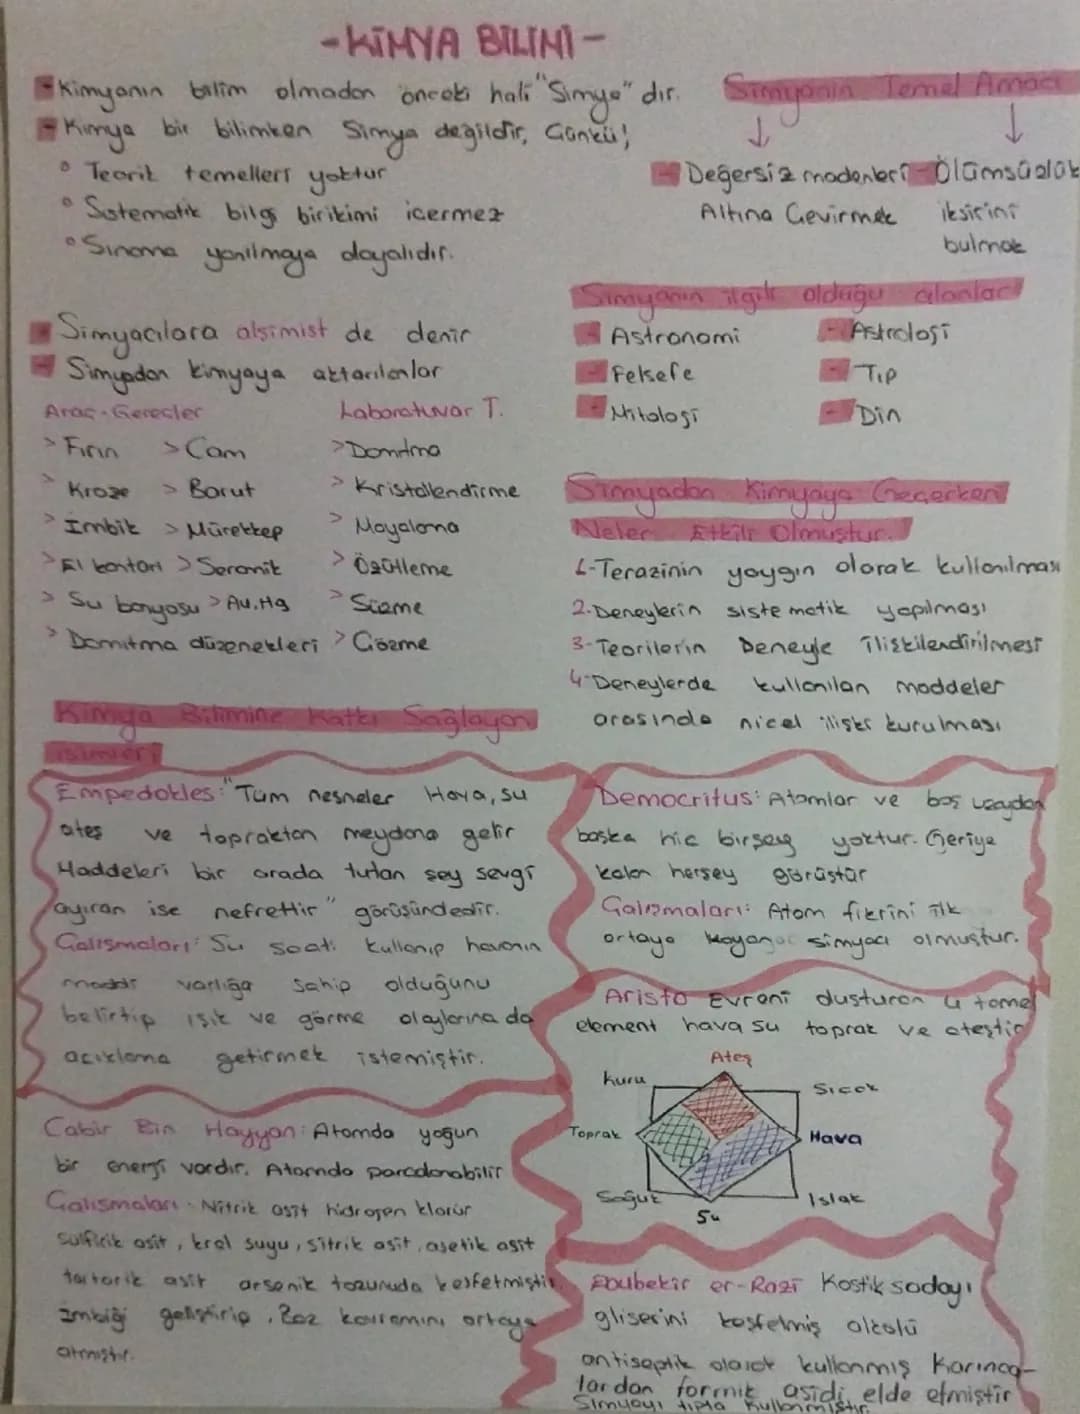 -KİMYA BİLİMİ-
-Kimyanın bilim olmadan önceki hali "Simya" dır.
-Kimya bir bilimken Simya değildir, Çünkü!
° Teorik temelleri yoktur
° Sistematik bilgi birikimi içermez
° Sınama yanılmaya dayalıdır.
Simyanın Temel Amacı
↓ ↓
- Değersiz madenleri
Altına Çevirmek
- Ölümsüzlük
iksirini
bulmak
Simyanın ilgili olduğu alanlar
- Astronomi - Astroloji
- Felsefe - Tıp
- Mitoloji - Din
- Simyacılara alşimist de denir
- Simyadan kimyaya aktarılanlar
Araç-Gereçler
> Fırın > Cam
> Kroze > Barut
> İmbik > Mürekkep
> El kantarı > Seramik
> Su banyosu > Au, Hg
> Damıtma düzenekleri
Laboratuvar T.
> Damıtma
> Kristallendirme
> Mayalama
> Özütleme
> Süzme
> Çözme
Simyadan Kimyaya Geçerken
Neler Etkili Olmuştur.
1-Terazinin yaygın olarak kullanılması
2-Deneylerin sistematik yapılması
3-Teorilerin Deneyle ilişkilendirilmesi
4-Deneylerde kullanılan maddeler
arasında nicel ilişki kurulması
Kimya Bilimine Katkı Sağlayan
isimleri
Empedokles: "Tüm nesneler Hava, su
ateş ve topraktan meydana gelir
Maddeleri bir arada tutan şey sevgi
ayıran ise nefrettir" görüşündedir.
Çalışmaları: Su saati kullanıp havanın
maddi varlığa sahip olduğunu
belirtip ışık ve görme olaylarına da
açıklama getirmek istemiştir.
Democritus: Atomlar ve boş uzaydan
başka hiç birşey yoktur. Geriye
kalan herşey görüştür
Çalışmaları: Atom fikrini ilk
ortaya koyan simyacı olmuştur.
Aristo Evreni oluşturan 4 temel
element hava su toprak ve ateştir
Ateş
Kuru Sıcak
Toprak Hava
Soğuk Islak
Su
Cabir Bin Hayyan: Atomda yoğun
bir enerji vardır. Atomda parçalanabilir
Çalışmaları: Nitrik asit hidrojen klorür
sülfirik asit, kral suyu, sitrik asit, asetik asit
tartarik asit arsenik tozunuda keşfetmiştir
İmbiği geliştirip, Baz kavramını ortaya
atmıştır.
Ebubekir er-Razi Kostik sodayı
gliserini keşfetmiş alkolü
antiseptik olarak kullanmış Karınca-
lardan formik asidi elde etmiştir
Simyayı tıpta kullanmıştır.